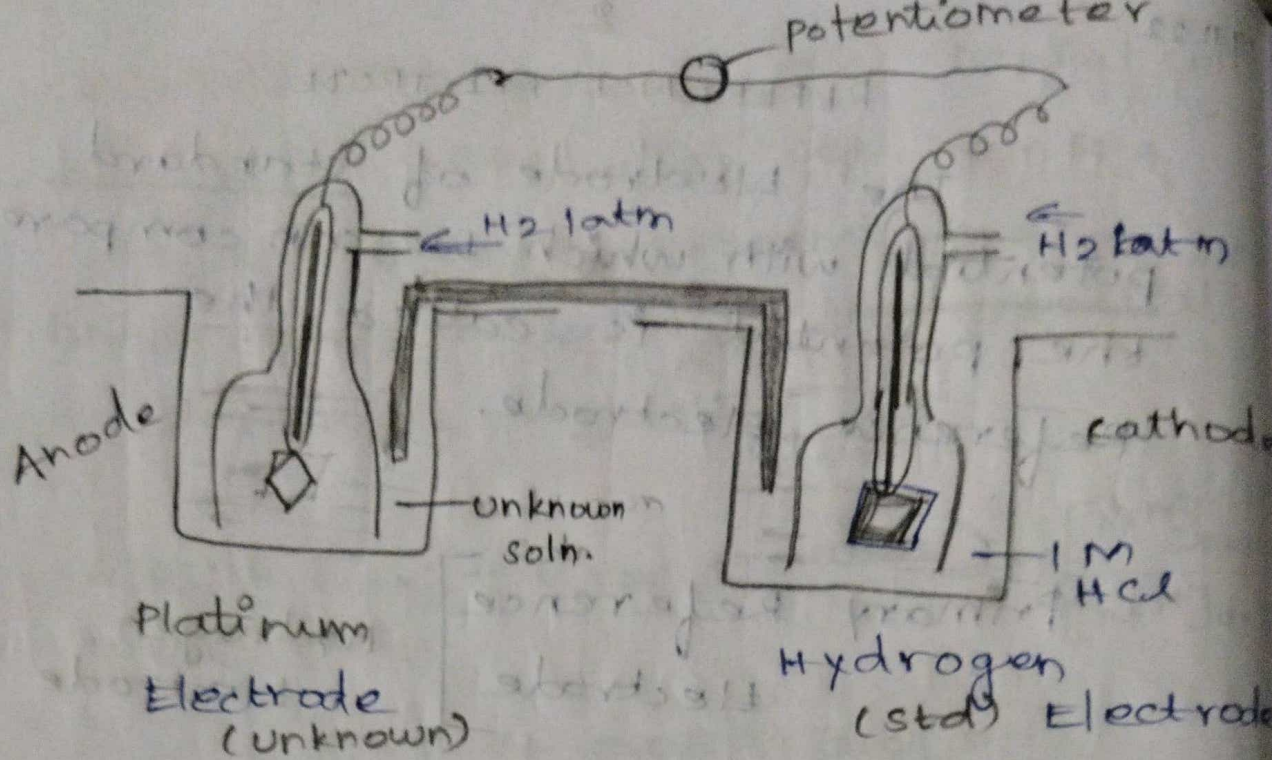 Potentiometer
H2 1atm
H2 1atm
Anode
Cathode
unknown
soln.
1 M
HCl
Platinum
Electrode
(unknown)
Hydrogen
(std) Electrode